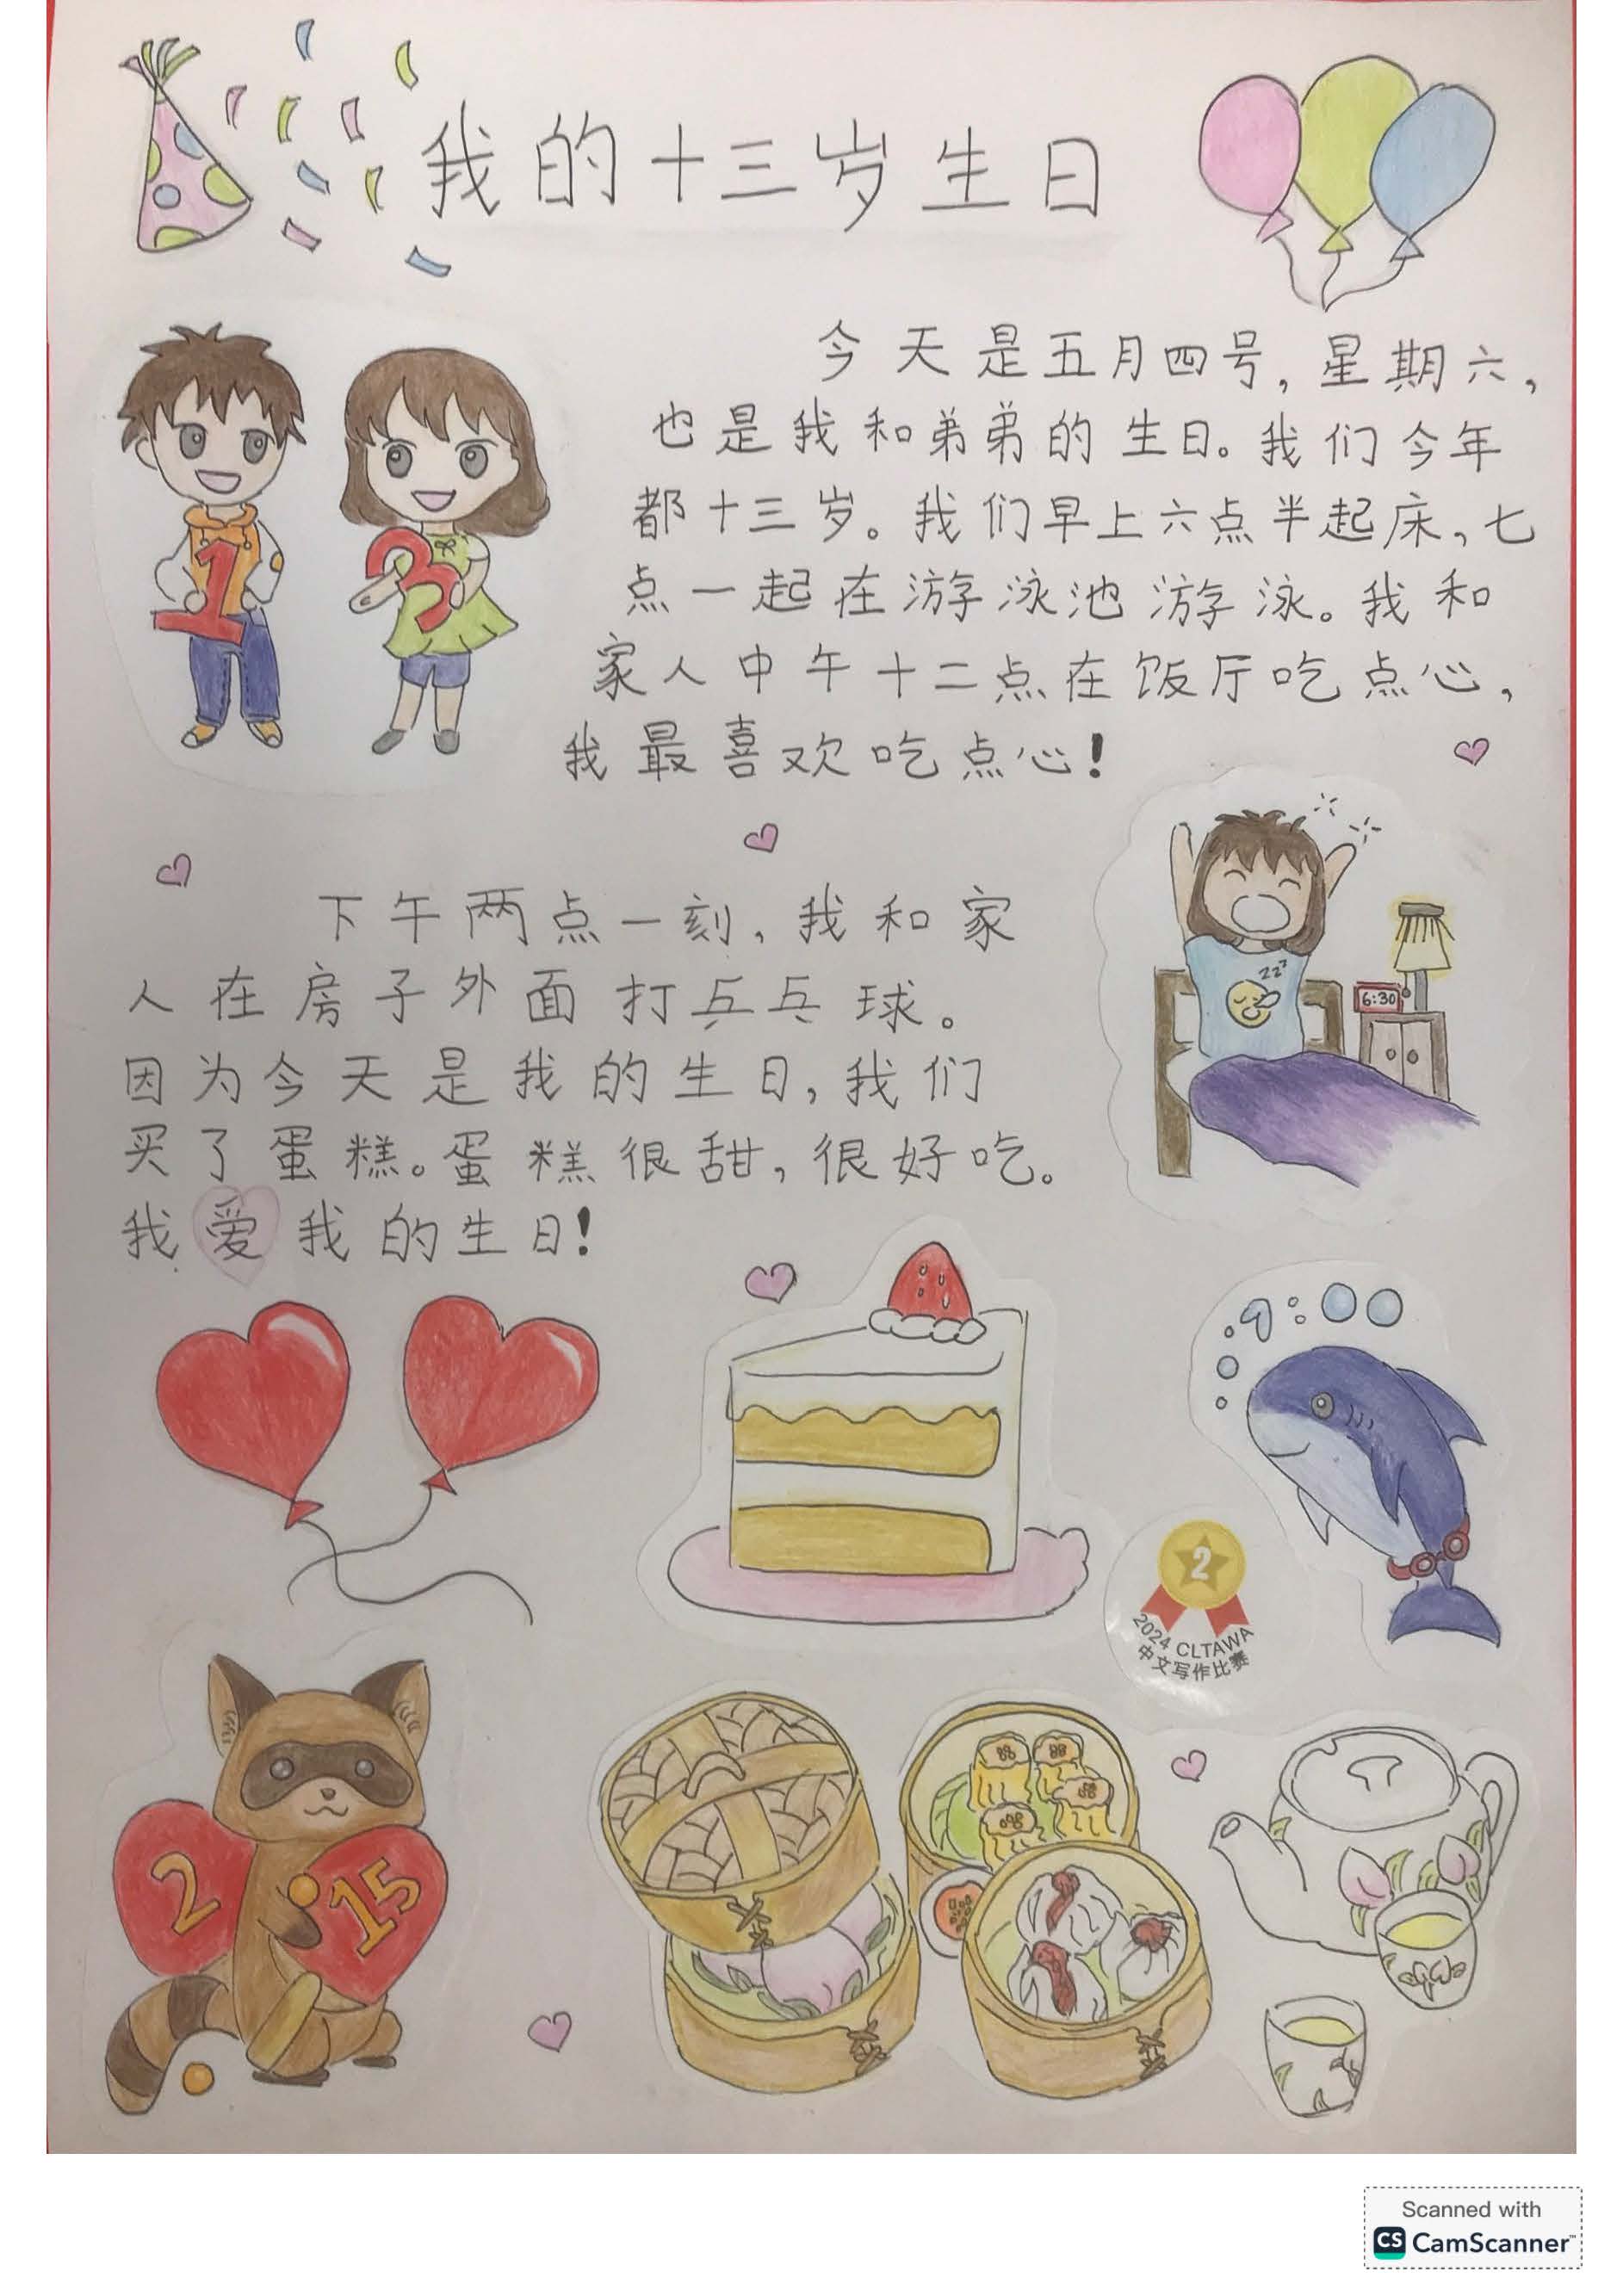 我的十三岁生日
今天是五月四号，星期六，
也是我和弟弟的生日。我们今年
都十三岁。我们早上六点半起床，七
点一起在游泳池游泳。我和
家人中午十二点在饭厅吃点心，
我最喜欢吃点心！
下午两点一刻，我和家
人在房子外面打乒乓球。
因为今天是我的生日，我们
买了蛋糕。蛋糕很甜，很好吃。
我爱我的生日！
1
3
zzz
6:30
2
2024 CLTAWA
中文写作比赛
2
15
Scanned with
CS CamScanner™